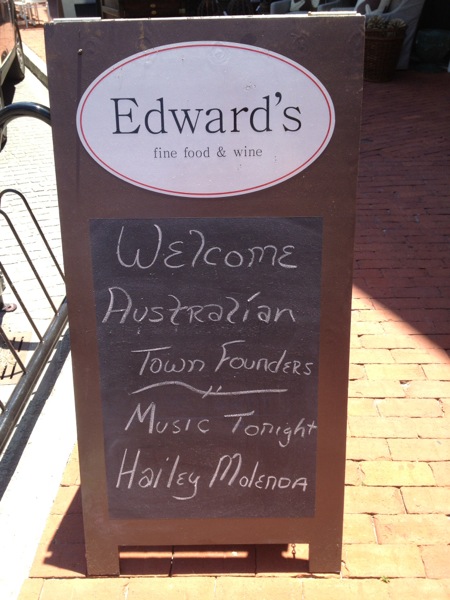 Edward's
fine food & wine
Welcome
Australian
Town Founders
Music Tonight
Hailey Molenda